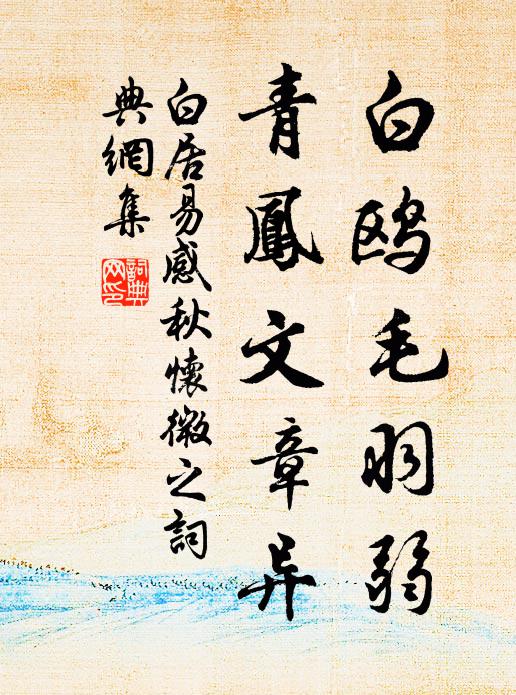 白鸥毛羽弱
青鳳文章异
白居易感秋懷微之詞
典網集
詞典
网印